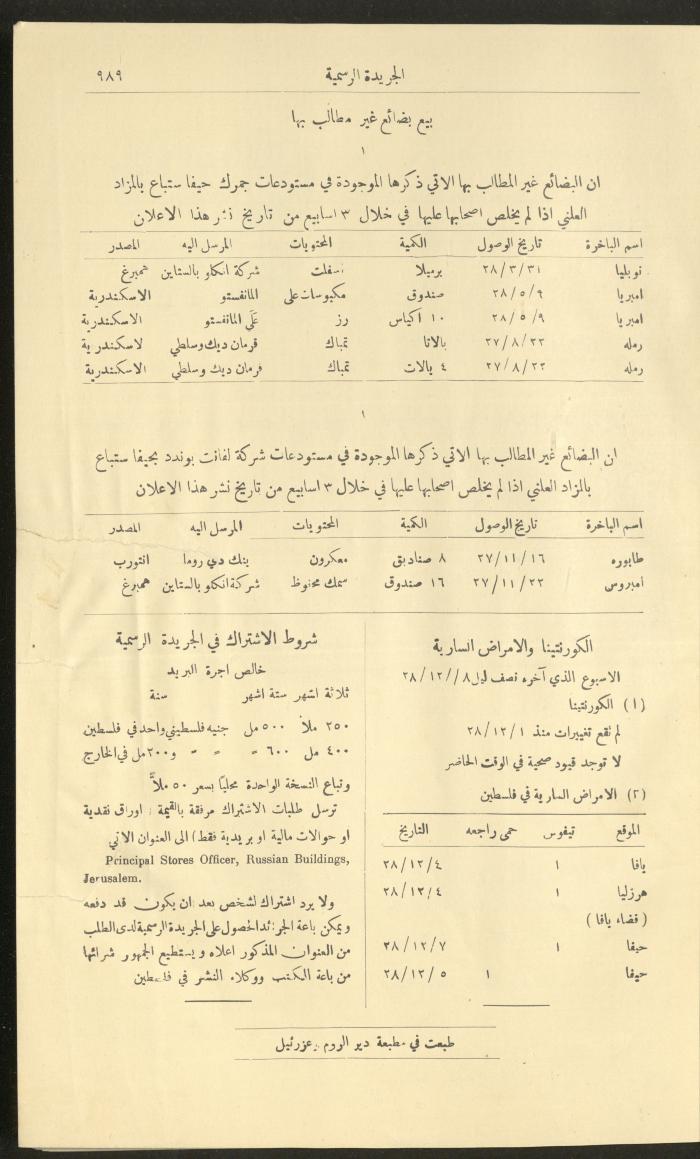 الجريدة الرسمية ٩٨٩
بيع بضائع غير مطالب بها
١
ان البضائع غير المطالب بها الاتي ذكرها الموجودة في مستودعات جمرك حيفا ستباع بالمزاد
العلني اذا لم يخلص اصحابها عليها في خلال ٣ اسابيع من تاريخ نشر هذا الاعلان
اسم الباخرة تاريخ الوصول الكمية المحتويات المرسل اليه المصدر
نوبليا ٢٨/٣/٣١ برميلا اسفلت شركة انكلو بالستاين همبرغ
امبريا ٢٨/٥/٩ صندوق مكبوسات على المانفستو الاسكندرية
امبريا ٢٨/٥/٩ ١٠ اكياس رز على المانفستو الاسكندرية
رمله ٢٧/٨/٢٢ بالاتا تمباك قرمان ديك وسلطي لاسكندرية
رمله ٢٧/٨/٢٢ ٤ بالات تمباك قرمان ديك وسلطي الاسكندرية
١
ان البضائع غير المطالب بها الاتي ذكرها الموجودة في مستودعات شركة لفانت بوندد بحيفا ستباع
بالمزاد العلني اذا لم يخلص اصحابها عليها في خلال ٣ اسابيع من تاريخ نشر هذا الاعلان
اسم الباخرة تاريخ الوصول الكمية المحتويات المرسل اليه المصدر
طابوره ٢٧/١١/١٦ ٨ صناديق معكرون بنك دي روما انتورب
امبروس ٢٧/١١/٢٢ ١٦ صندوق سمك محفوظ شركة انكلو بالستاين همبرغ
الكورنتينا والامراض السارية
الاسبوع الذي آخره نصف ليل ٨//١٢/٢٨
(١) الكورنتينا
لم تقع تغييرات منذ ٢٨/١٢/١
لا توجد قيود صحية في الوقت الحاضر
(٢) الامراض السارية في فلسطين
الموقع تيفوس حمى راجعه التاريخ
يافا ١ ٢٨/١٢/٤
هرزليا ١ ٢٨/١٢/٤
(قضاء يافا)
حيفا ١ ٢٨/١٢/٧
حيفا ١ ٢٨/١٢/٥
شروط الاشتراك في الجريدة الرسمية
خالص اجرة البريد
ثلاثة اشهر ستة اشهر سنة
٢٥٠ ملاً ٥٠٠ مل جنيه فلسطيني واحد في فلسطين
٤٠٠ مل ٦٠٠ » » » و٢٠٠ مل في الخارج
وتباع النسخة الواحدة محلياً بسعر ٥٠ ملاً
ترسل طلبات الاشتراك مرفقة بالقيمة (اوراق نقدية
او حوالات مالية او بريدية فقط) الى العنوان الاتي
Principal Stores Officer, Russian Buildings,
Jerusalem.
ولا يرد اشتراك لشخص بعد ان يكون قد دفعه
ويمكن باعة الجرائد الحصول على الجريدة الرسمية لدى الطلب
من العنوان المذكور اعلاه ويستطيع الجمهور شرائها
من باعة الكتب ووكلاء النشر في فلسطين
طبعت في مطبعة دير الروم